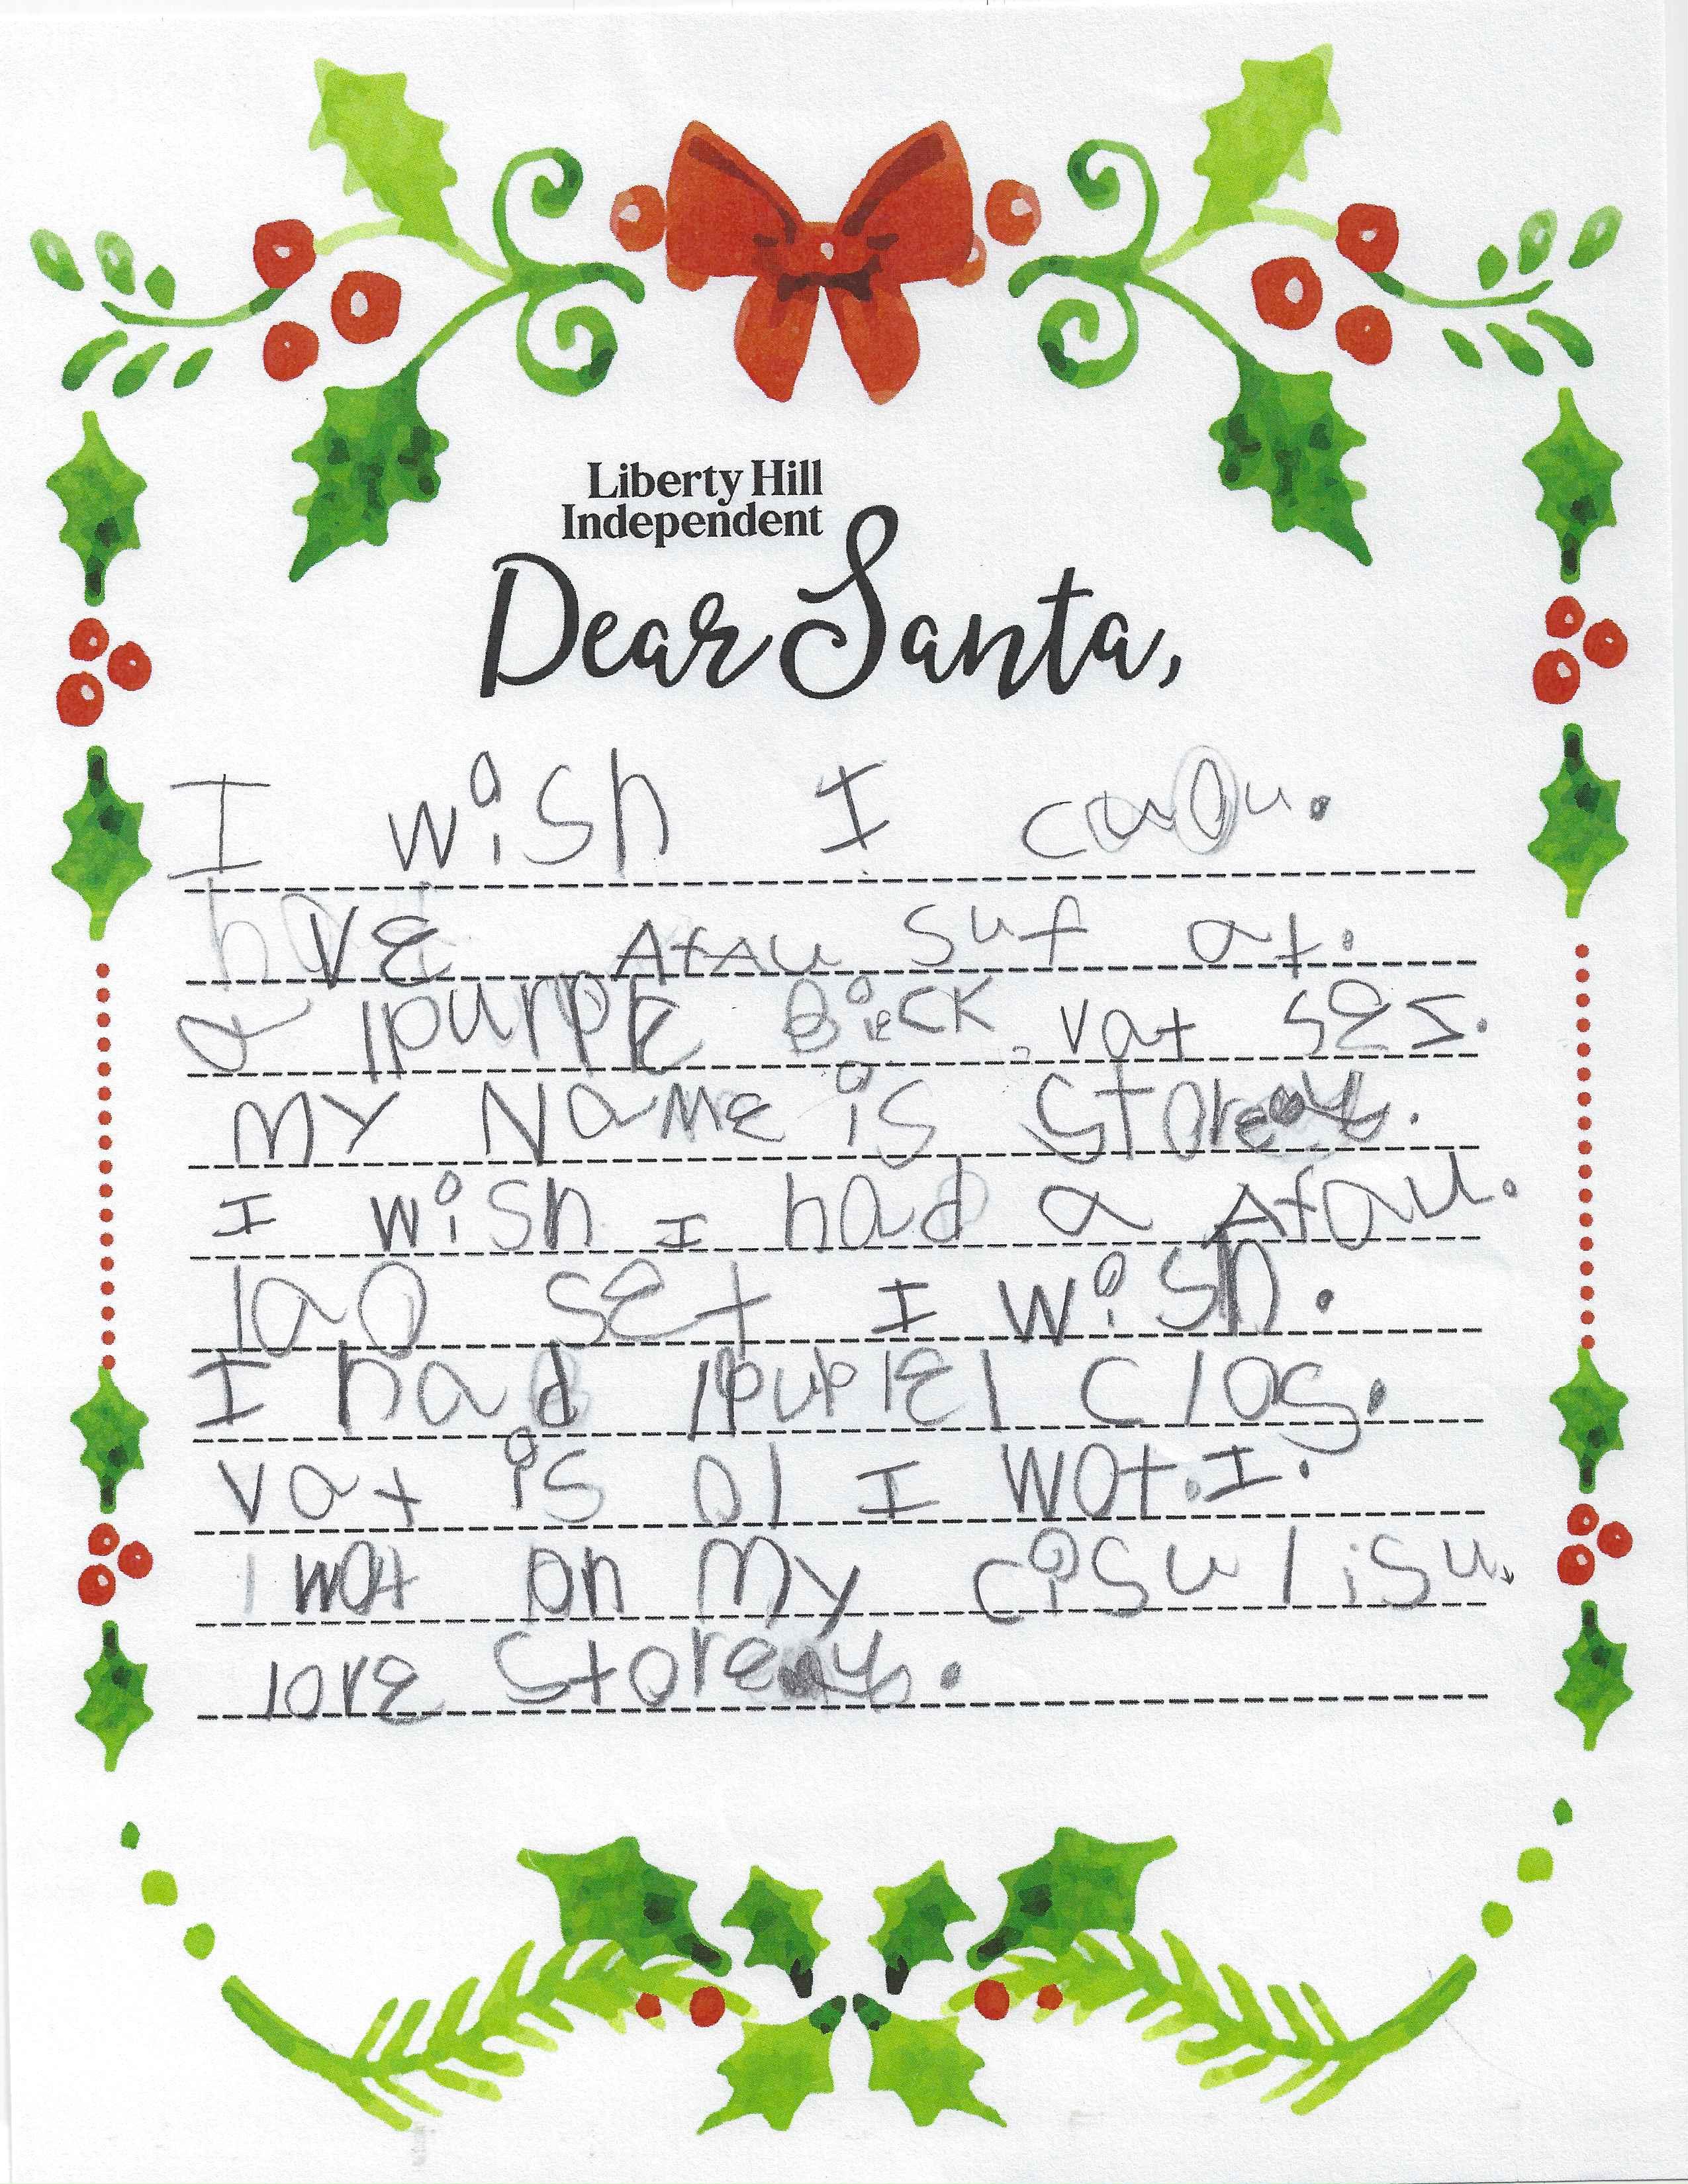 Liberty Hill
Independent
Dear Santa,
I wish I
havE AtAu suf at.
a purpE Bick vat sEs.
MY NaME is StorEy.
I wish I had a Atau.
lao sEt I wish.
I had pupEl clos.
vat is ol I wot. I.
wot on My cisulisu.
lovE StorEy.